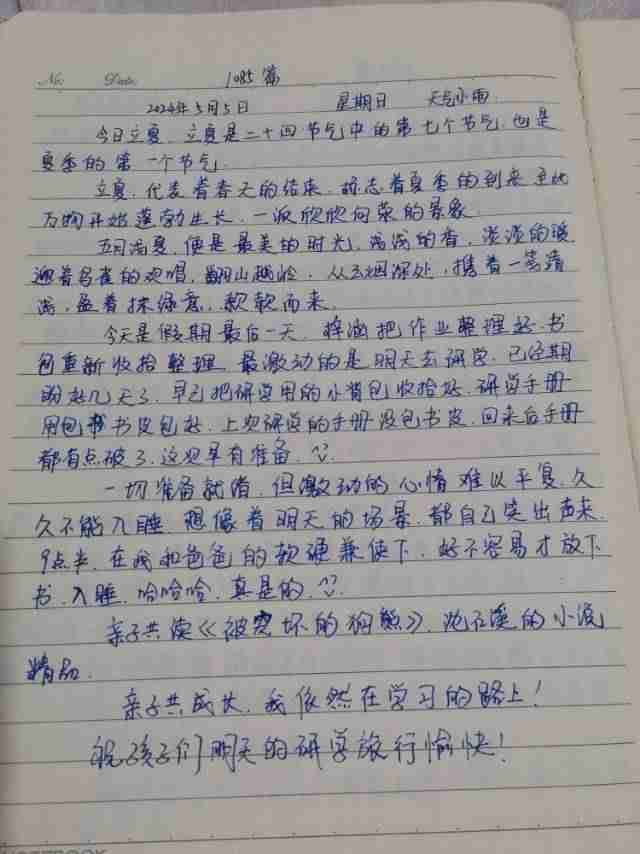 No. Date 1085篇
2024年5月5日 星期日 天气小雨
今日立夏，立夏是二十四节气中的第七个节气，也是
夏季的第一个节气。
立夏，代表着春天的结束，标志着夏季的到来，至此
万物开始蓬勃生长，一派欣欣向荣的景象。
五月浅夏，便是最美的时光，浅浅的香，淡淡的暖
迎着鸟雀的欢唱，翻山越岭，从云烟深处，携着一笺清
浅，盈着抹绿意，款款而来。
今天是假期最后一天，梓涵把作业整理好，书
包重新收拾整理，最激动的是明天去研学，已经期
盼好几天了，早已把研学用的小背包收拾好，研学手册
用包书皮包好，上次研学的手册没包书皮，回来后手册
都有点破了，这次早有准备。
一切准备就绪，但激动的心情难以平复，久
久不能入睡，想像着明天的场景，都自己笑出声来，
9点半，在我和爸爸的软硬兼使下，好不容易才放下
书，入睡，哈哈哈，真是的，
亲子共读《被宠坏的狗熊》，沈石溪的小说
精品。
亲子共成长，我依然在学习的路上！
祝孩子们明天的研学旅行愉快！
NOTEBOOK